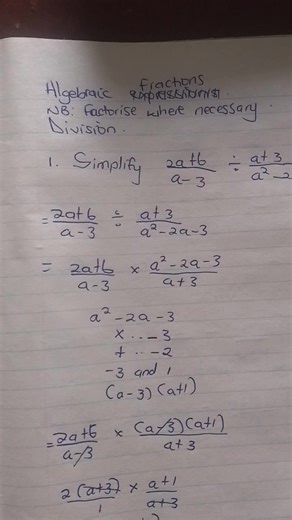 Algebraic fractions
expressions.
NB: Factorise where necessary.
Division.
1. Simplify (2a+6)/(a-3) ÷ (a+3)/(a²-2
= (2a+6)/(a-3) ÷ (a+3)/(a²-2a-3)
= (2a+6)/(a-3) × (a²-2a-3)/(a+3)
a²-2a-3
×...-3
+...-2
-3 and 1
(a-3)(a+1)
= (2a+6)/(a-3) × (a-3)(a+1)/(a+3)
2(a+3)/1 × (a+1)/(a+3)